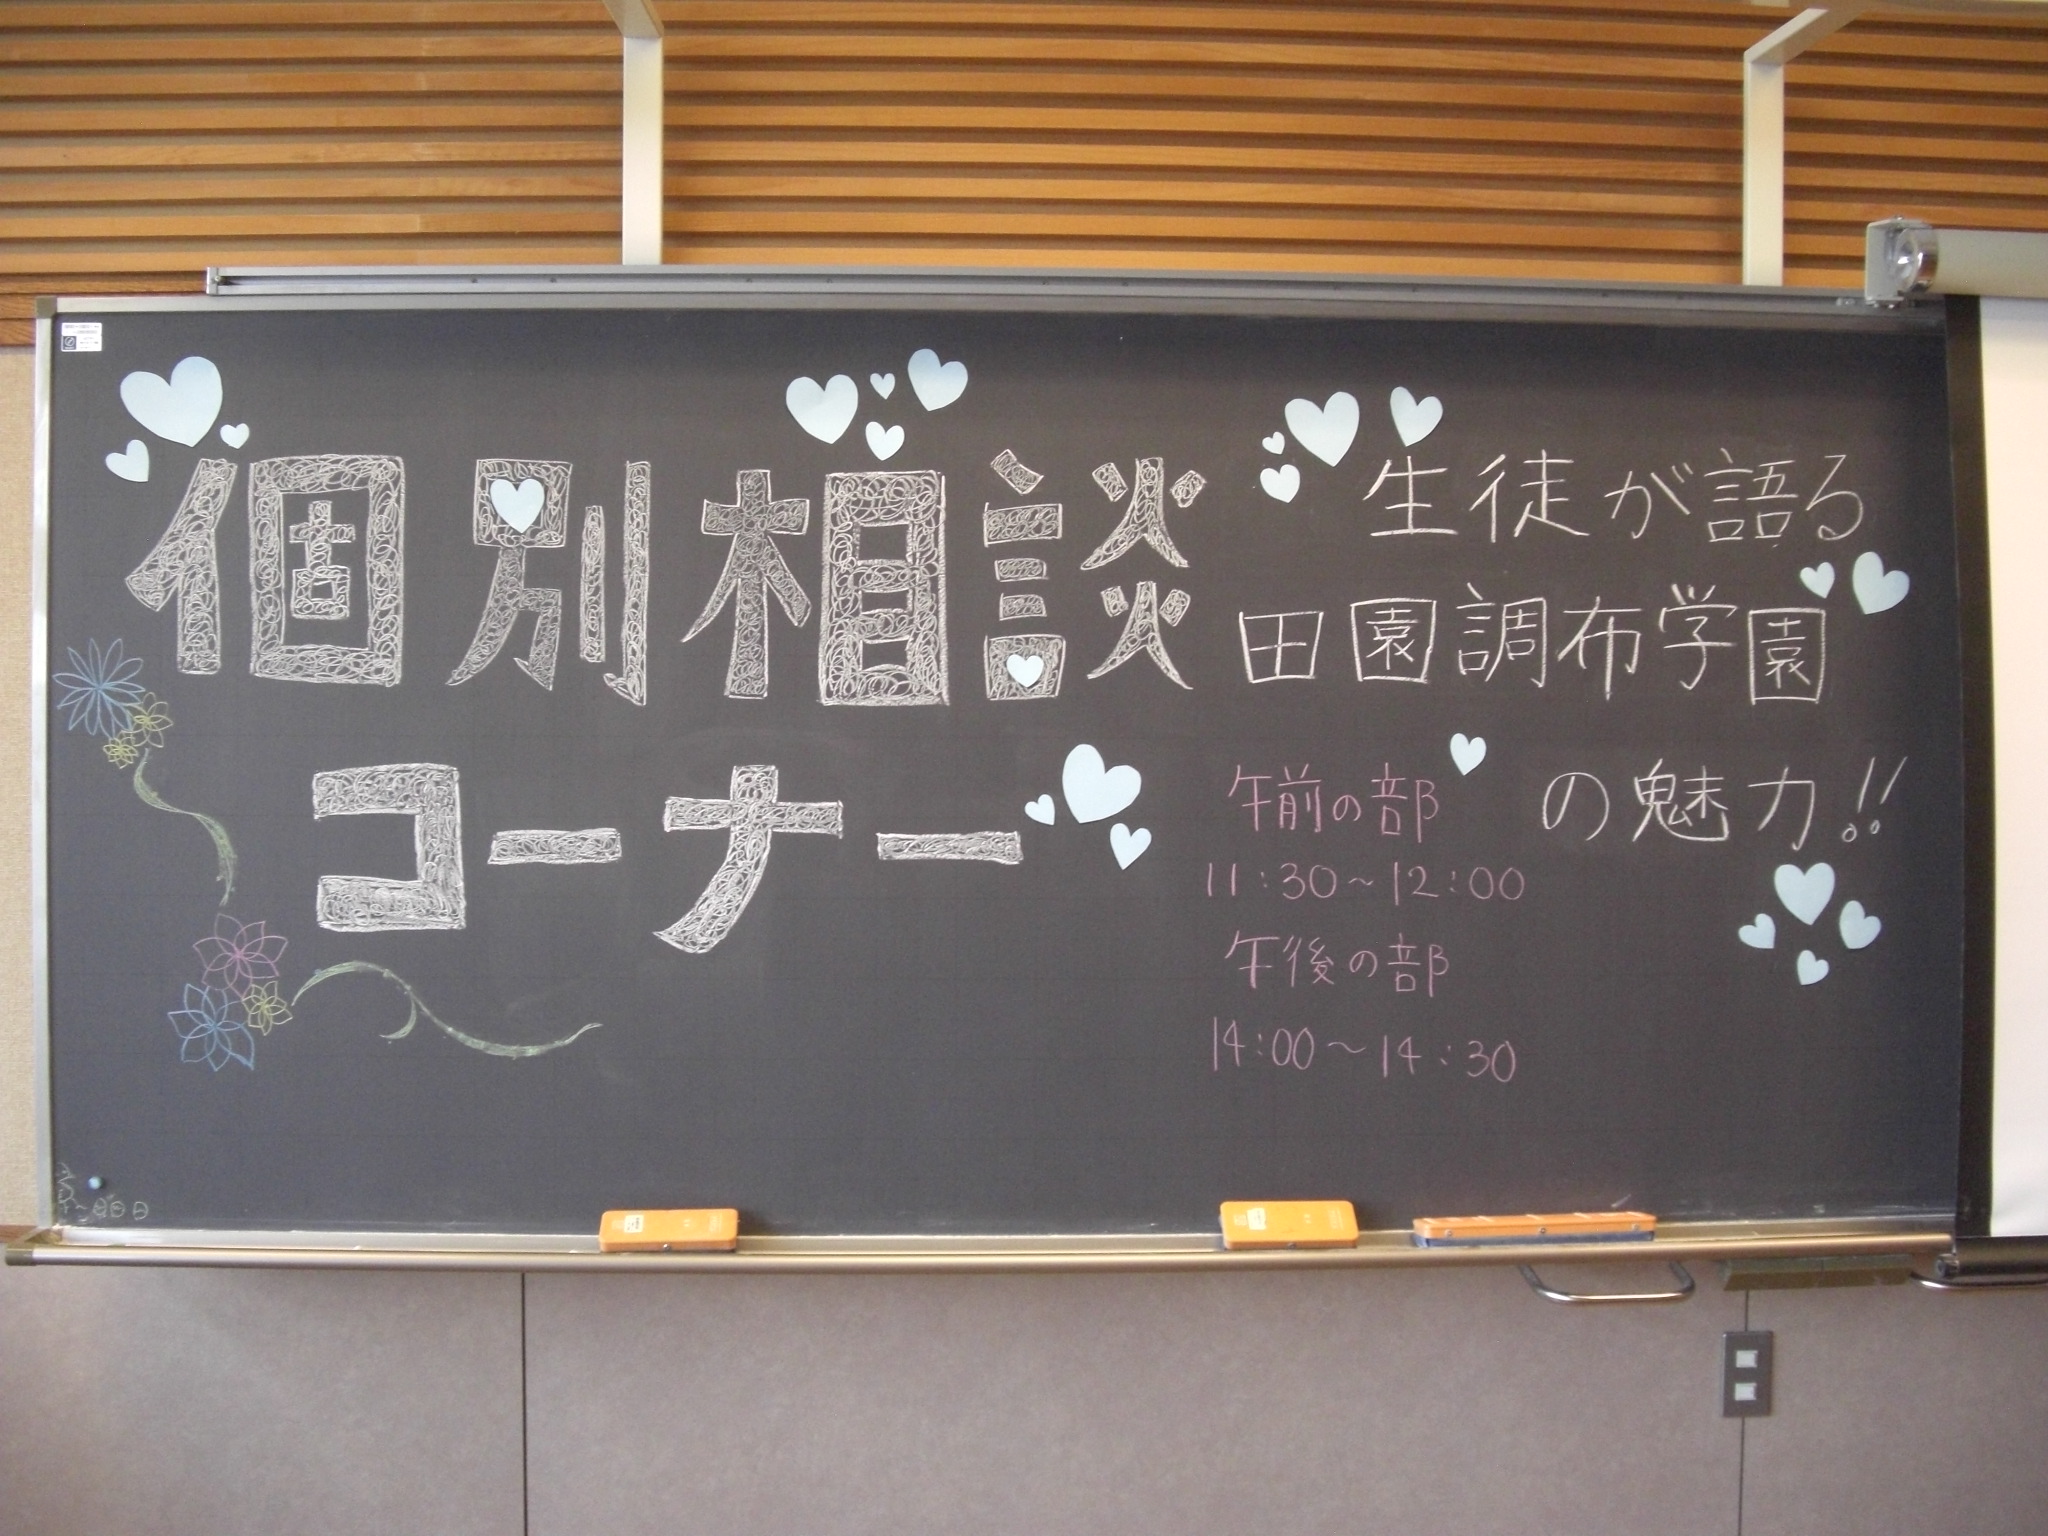 個別相談
コーナー
生徒が語る
田園調布学園
の魅力!!
午前の部
11:30~12:00
午後の部
14:00~14:30